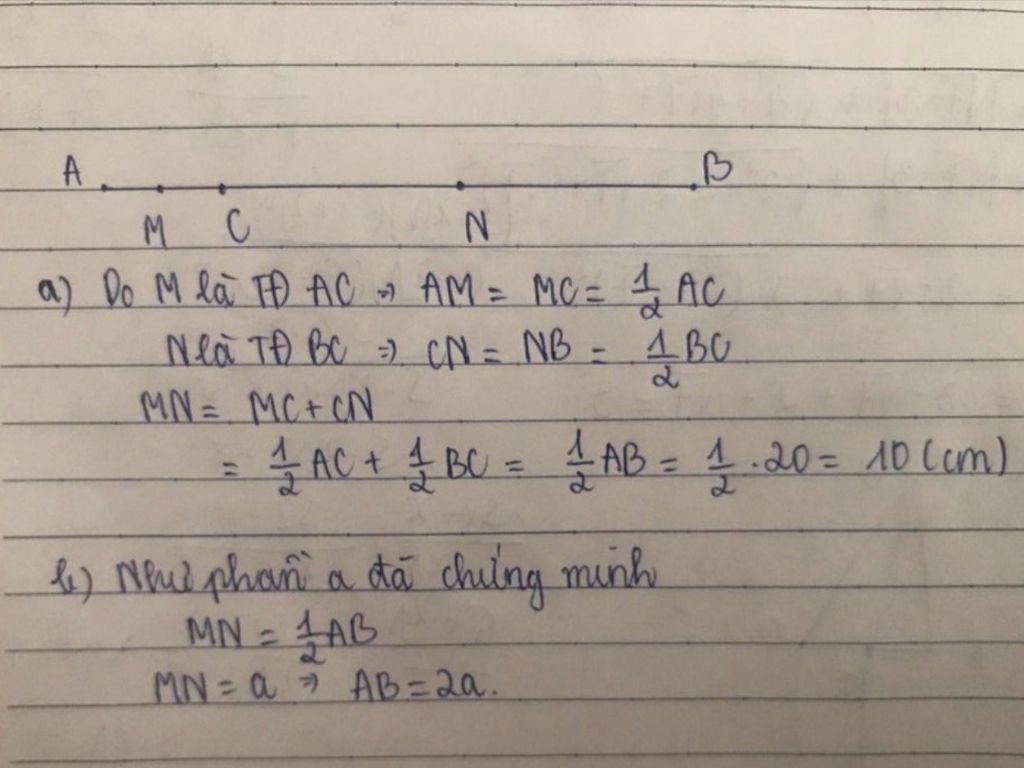 A B
M C N
a) Do M là TĐ AC => AM = MC = 1/2 AC
N là TĐ BC => CN = NB = 1/2 BC
MN = MC + CN
= 1/2 AC + 1/2 BC = 1/2 AB = 1/2 . 20 = 10 (cm)
b) Như phần a đã chứng minh
MN = 1/2 AB
MN = a => AB = 2a.